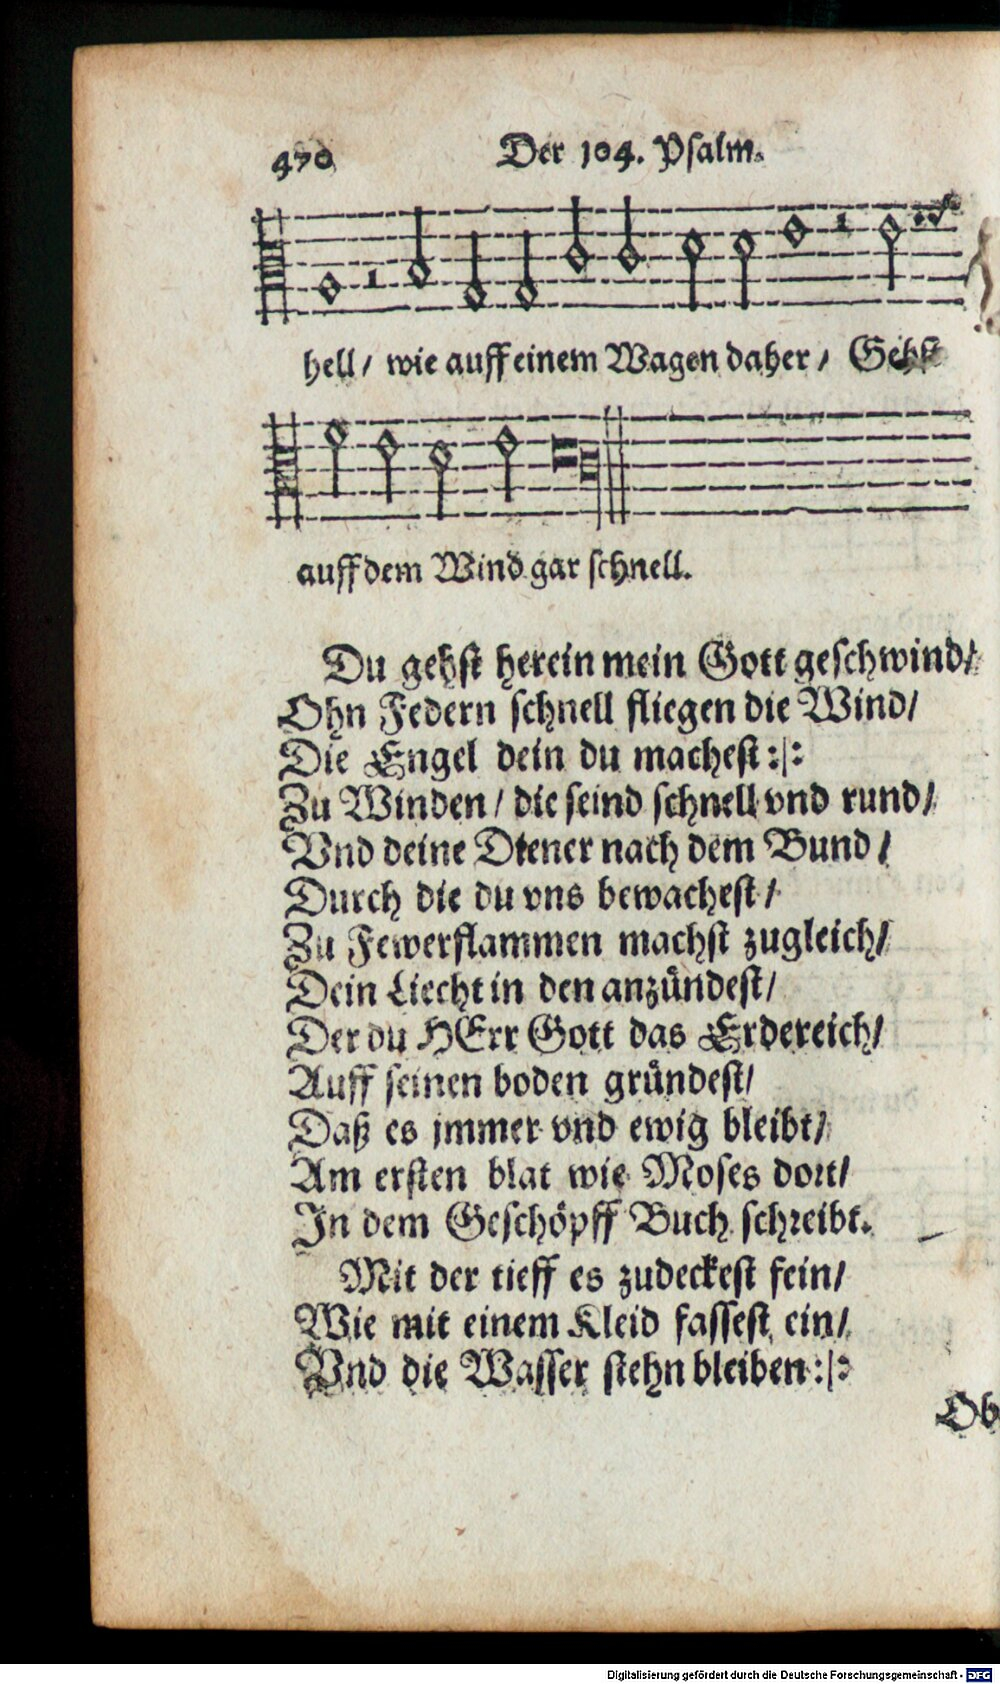 470 Der 104. Psalm.
hell/ wie auff einem Wagen daher/ Gehst
auff dem Wind gar schnell.
Du gehst herein mein Gott geschwind/
Ohn Federn schnell fliegen die Wind/
Die Engel dein du machest :|:
Zu Winden/ die seind schnell vnd rund/
Vnd deine Diener nach dem Bund/
Durch die du vns bewachest/
Zu Fewerflammen machst zugleich/
Dein Liecht in den anzündest/
Der du HErr Gott das Erdereich/
Auff seinen boden gründest/
Daß es jmmer vnd ewig bleibt/
Am ersten blat wie Moses dort/
In dem Geschöpff Buch schreibt.
Mit der tieff es zudeckest fein/
Wie mit einem Kleid fassest ein/
Vnd die Wasser stehn bleiben :|:
Ob
Digitalisierung gefördert durch die Deutsche Forschungsgemeinschaft - DFG